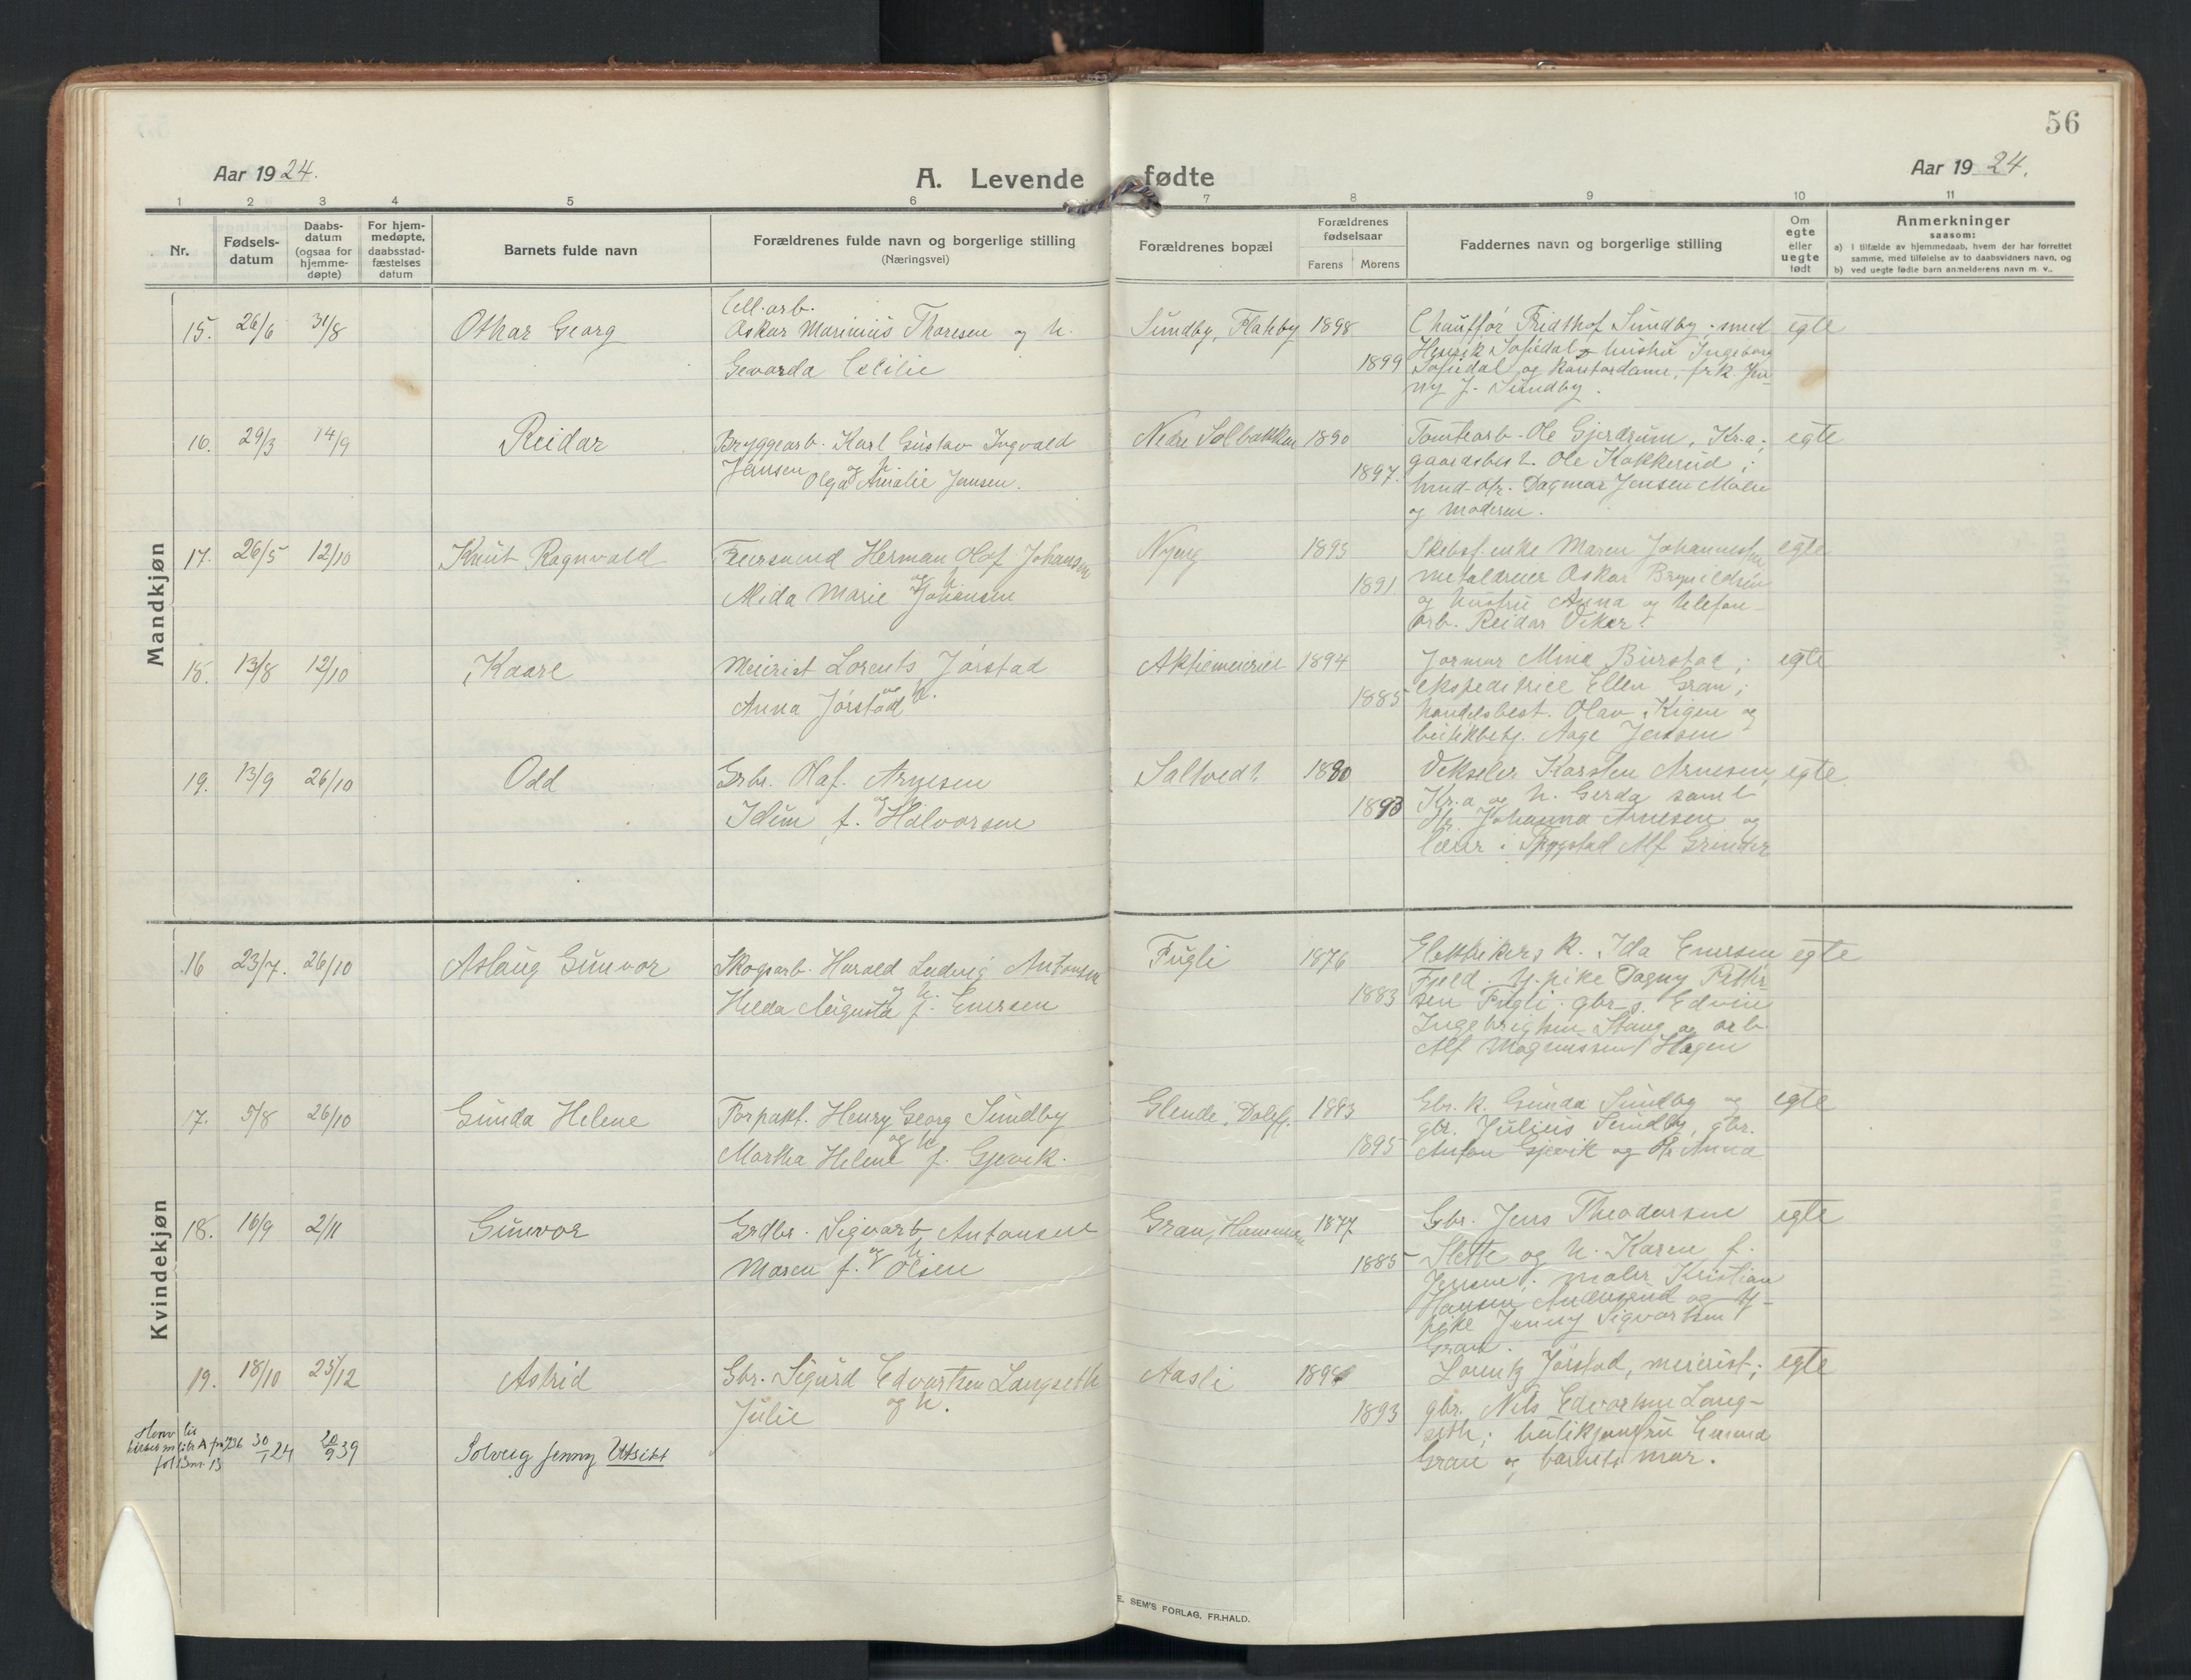 56
Aar 1924.
A. Levende fødte
Aar 1924.
1 2 3 4 5 6 7 8 9 10 11
Nr.
Fødsels-
datum
Daabs-
datum
(ogsaa for
hjemme-
døpte)
For hjem-
medøpte,
daabsstad-
fæstelses
datum
Barnets fulde navn
Forældrenes fulde navn og borgerlige stilling
(Næringsvei)
Forældrenes bopæl
Forældrenes
fødselsaar
Farens Morens
Faddernes navn og borgerlige stilling
Om
egte
eller
uegte
født
Anmerkninger
saasom:
a) i tilfælde av hjemmedaab, hvem der har forrettet
samme, med tilføielse av to daabsvidners navn, og
b) ved uegte fødte barn anmelderens navn m. v..
Mandkjøn
15. 26/6 31/8 Othar Georg
Cell.arb.
Oskar Marinius Thoresen og h.
Gevarda Cecilie
Sundby, Flateby 1898
1899
Chauffør Fridthof Sundby; smed
Henrik Sofiedal og hustru Ingeborg
Sofiedal og kontordame, frk. Jen-
ny J. Sundby.
egte
16. 29/3 14/9 Reidar
Bryggearb. Karl Gustav Ingvald
Jansen og h.
Olga Amalie Jansen.
Nedre Solbakken 1890
1897.
Tomtearb. Ole Gjerdrum, Kr.a;
gaardsbest. Ole Kokkerud;
Dagmar Jensen Moen
og moderen.
egte
17. 26/5 12/10 Knut Ragnvald
Herman Olof Johansen
og h.
Alida Marie Johansen
1895
1891
Skibsf. enke Maren Johannessen
Oskar Brynildsen
og hustru Anna og telefon-
arb. Reidar Viker.
egte
18. 13/8 12/10 Kaare
Meierist Lorents Jørstad
og h.
Anna Jørstad
Aktiemeieriet 1894
1885
Jormor Mina Burstad;
ekspeditrice Ellen Gran;
handelsbest. Olav Kigen og
butikbetj. Aage Jensen
egte
19. 13/9 26/10 Odd
Grbr. Olaf Arnesen
og h.
Idun f. Halvorsen
Saltvedt 1890
1893
Veksler Karsten Arnesen,
Kr.a og h. Gerda samt
fr. Johanna Arnesen og
lærer i Trygstad Alf Grinder
egte
Kvindekjøn
16 23/7. 26/10 Aslaug Gunvor
Skogsarb. Harald Ludvig Antonsen
og h.
Hilda Augusta f. Enersen
Fugli 1876
1883
Elektrikers k. Ida Enersen
Fjeld. U. pike Dagny Petter-
sen Fugli. gbr. s. Edvin
Ingebrigtsen Stang og arb.
Alf Magnussen Hagen
egte
17. 5/8 26/10 Gunda Helene
Forpakt. Henry Georg Sundby
og h.
Martha Helene f. Gjevik.
1893
1895
Gbr. k. Gunda Sundby og
gbr. Julius Sundby, gbr.
Anton Gjevik og Anna
egte
18. 16/9 2/11 Gunvor
Grdbr. Sigvart Antonsen
og h.
Maren f. Olsen
Gran, Hammeren 1877
1885
Gbr. Jens Theodorsen
Slette og h. Karen f.
Jensen; maler Kristian
Hansen og U.
pike Jenny Sigvartsen
Gran.
egte
19. 18/10 25/12 Astrid
Gbr. Sigurd Edvartsen Langseth
og h.
Julie
Aasli
1893
Lorentz Jørstad, meierist;
gbr. Nils Edvartsen Lang-
seth; butikjomfru
Gran og barnets mor.
egte
30/1 24 20/9 39 Solveig Jenny Utsikt
E. SEM'S FORLAG, FR.HALD.